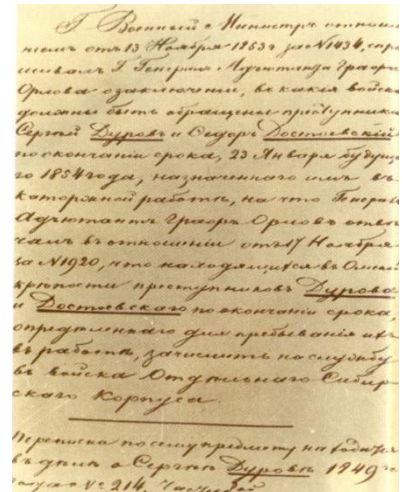 Г. Военный Министръ отноше
ніемъ отъ 13 Ноября 1853 г за № 1434, спра
шивалъ Г. Генералъ Адъютанта Графа
Орлова о заключеніи, въ какія войска
должны быть обращены преступники
Сергѣй Дуровъ и Ѳедоръ Достоевскій
по окончаніи срока, 23 Января будуща
го 1854 года, назначеннаго имъ въ
каторжной работѣ, на что Генералъ
Адъютантъ Графъ Орловъ отвѣ
чалъ въ отношеніи отъ 17 Ноября
за № 1920, что находящихся въ Омской
крѣпости преступниковъ Дурова
и Достоевскаго по окончаніи срока,
опредѣленнаго для пребыванія ихъ
въ работѣ, зачислить на службу
въ войска Отдѣльнаго Сибир
скаго Корпуса.
Переписка по сему предмету находится
въ дѣлѣ о Сергѣѣ Дуровѣ 1849 го
года № 214,